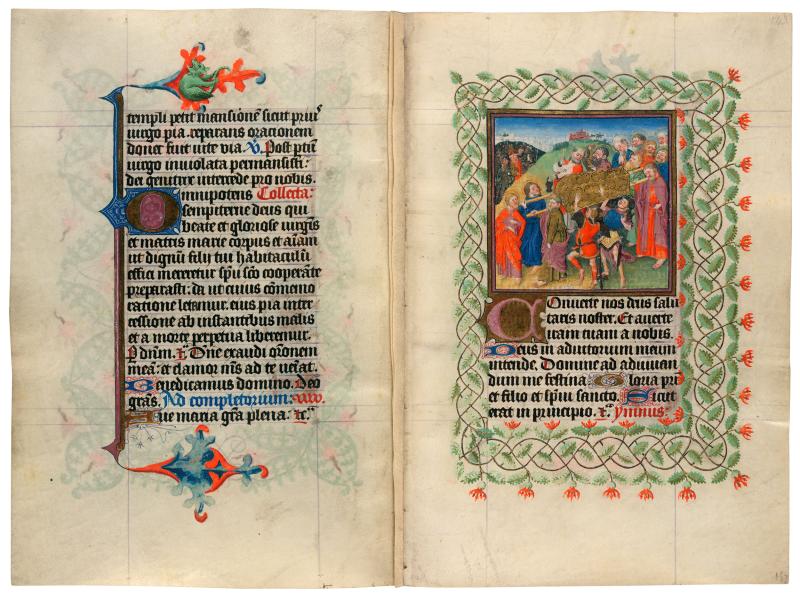 templi petit mansionē sicut prius
uirgo pia. reparans orationem
donec fuit uite via. V̄. Post ptū
uirgo inuiolata permansisti:
dei genitrix intercede pro nobis.
Omnipotens Collecta:
sempiterne deus qui
beate et gloriose uirgīs
et matris marie corpus et aīam
ut dignū filij tui habitaculū
effici mereretur spū scō cooperāte
preparasti: da ut cuius cōmemo
ratione letamur. eius pia inter
cessione ab instantibus malis
et a morte perpetua liberemur.
P dnm. Dne exaudi orōnem
mea: et clamor mś ad te ueīat.
Benedicamus domino. Deo
grās. Ad completorium:
Aue maria grā plena: zc̄
Conuerte nos deus salu
taris noster. Et auerte
iram tuam a nobis.
Deus in adiutorium meum
intende. Domine ad adiuuan
dum me festina Gloria pri
et filio et spūi sancto. Sicut
erat in principio. zc̄ Ymnus: